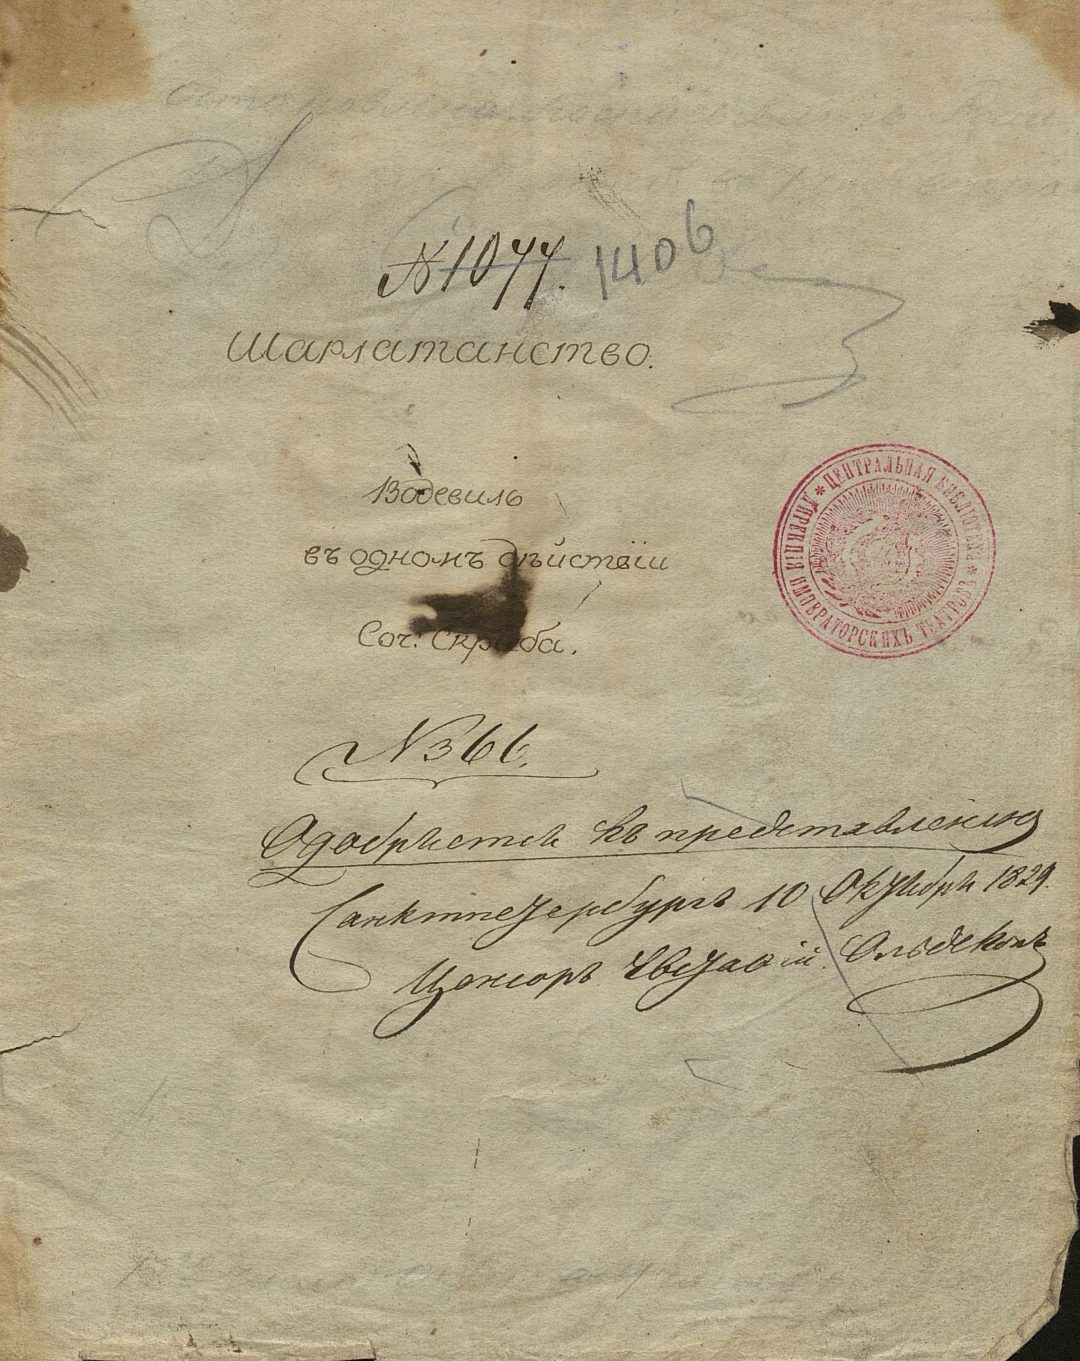 № 1077.
1406
Шарлатанство.
Водевиль
въ одномъ дѣйствіи
Соч: Скриба.
№ 366.
Одобряется къ представленію
Санктпетербургъ 10 Октября 1829.
Цензоръ Евстафій Ольдекопъ
* ЦЕНТРАЛЬНАЯ БИБЛІОТЕКА * ДИРЕКЦІЯ ИМПЕРАТОРСКИХЪ ТЕАТРОВЪ